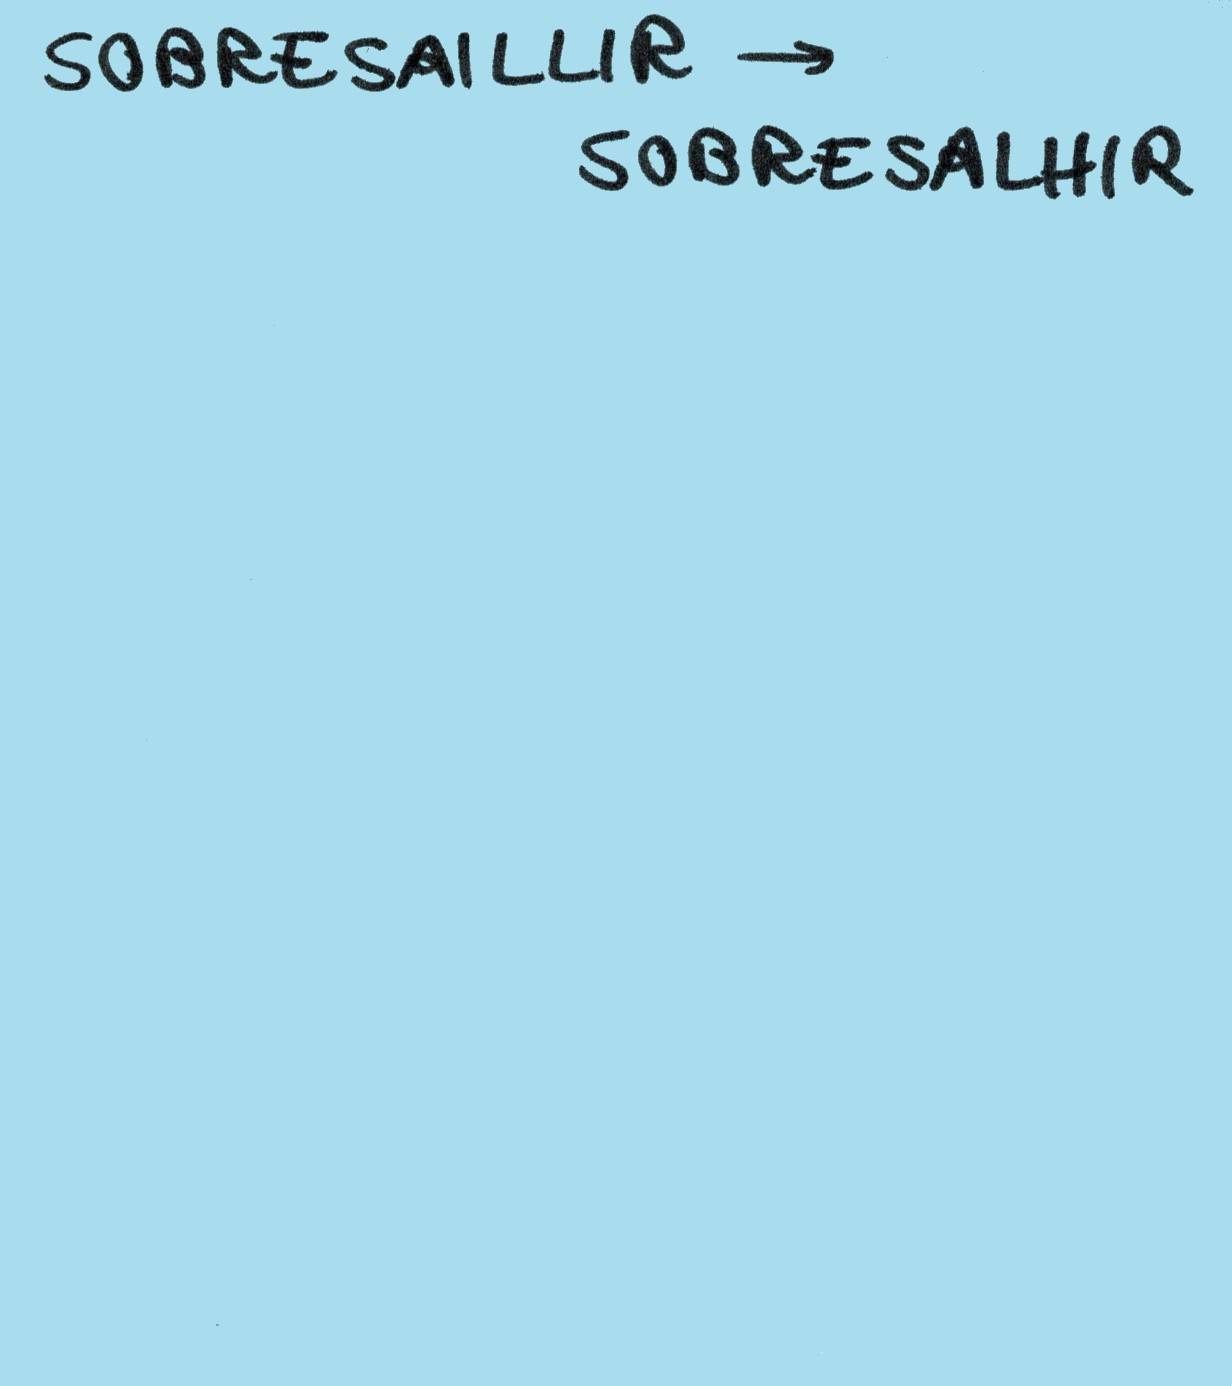 SOBRESAILLIR →
SOBRESALHIR